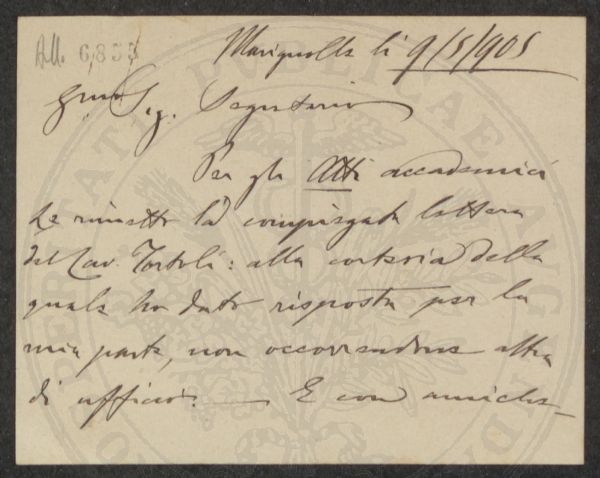 All. 6,853
Marignolle li 9/5/905
Gmo Sig. Segretario
Per gli Atti accademici
Le rimetto la compiegata lettera
del Cav. Tortoli: alla cortesia della
quale ho dato risposta per la
mia parte, non occorrendone altra
di ufficio. — E con amiche-